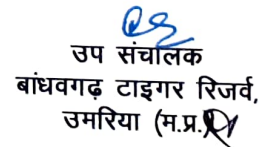 उप संचालक
बांधवगढ़ टाइगर रिजर्व,
उमरिया (म.प्र.)